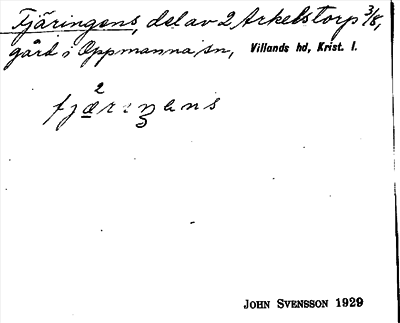 Fjäringens, del av 2 Arkelstorp 3/8,
gård i Oppmanna sn, Villands hd, Krist. l.
2
fjærɪŋəns
JOHN SVENSSON 1929